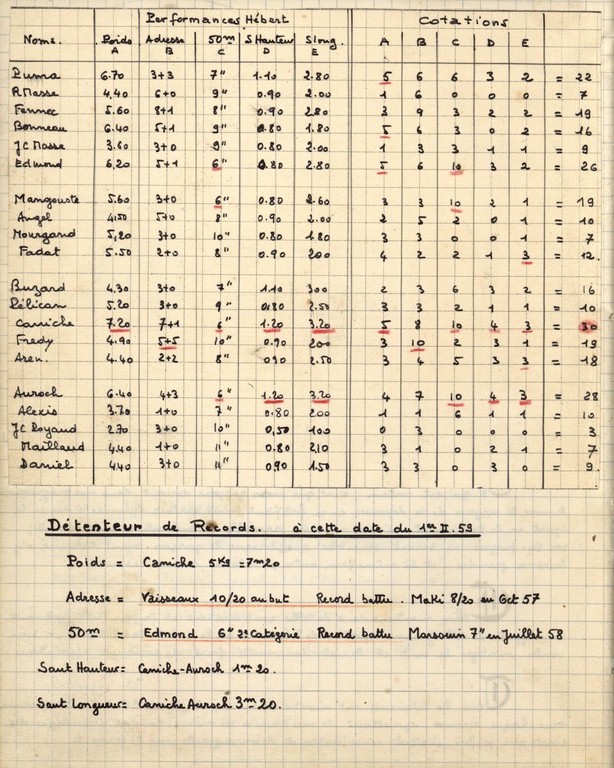 Performances Hébert Cotations
Noms. Poids Adresse 50m S Hauteur S long. A B C D E
A B C D E
Puma 6.70 3+3 7" 1.10 2.80 5 6 6 3 2 = 22
R Masse 4,40 6+0 9" 0.90 2.00 1 6 0 0 0 = 7
Fennec 5.60 8+1 8" 0.90 280 3 9 3 2 2 = 19
Bonneau 6.40 5+1 9" 0.80 1.80 5 6 3 0 2 = 16
JC Masse 3.60 3+0 9" 0.80 2.00 1 3 3 1 1 = 9
Edmond 6,20 5+1 6" 0.80 2.80 5 6 10 3 2 = 26
Mangouste 5.60 3+0 6" 0.80 2.60 3 3 10 2 1 = 19
Angel 4,50 5+0 8" 0.90 2.00 2 5 2 0 1 = 10
Mourgand 5,20 3+0 10" 0.80 1.80 3 3 0 0 1 = 7
Fadat 5.50 2+0 8" 0.90 200 4 2 2 1 3 = 12.
Buzard 4.30 3+0 7" 1.10 300 2 3 6 3 2 = 16
Pélican 5.20 3+0 9" 0,80 2.50 3 3 2 1 1 = 10
Caniche 7.20 7+1 6" 1.20 3.20 5 8 10 4 3 = 30
Fredy 4.90 5+5 10" 0.90 200 3 10 2 3 1 = 19
Aren. 4.40 2+2 8" 090 2.50 3 4 5 3 3 = 18
Auroch 6.40 4+3 6" 1.20 3.20 4 7 10 4 3 = 28
Alexis 3.70 1+0 7" 0.80 200 1 1 6 1 1 = 10
JC Royaud 270 3+0 10" 0,50 100 0 3 0 0 0 = 3
Maillaud 4.40 1+0 11" 0.80 210 3 1 0 2 1 = 7
Daniel 4.40 3+0 11" 090 1.50 3 3 0 3 0 = 9.
Détenteur de Records. à cette date du 1er II. 59
Poids = Caniche 5Kgs = 7m20
Adresse = Vaisseaux 10/20 au but Record battu. Maki 8/20 en Oct 57
50m = Edmond 6" 2e Catégorie Record battu Marsouin 7" en Juillet 58
Saut Hauteur = Caniche-Auroch 1m20.
Saut Longueur = Caniche Auroch 3m20.